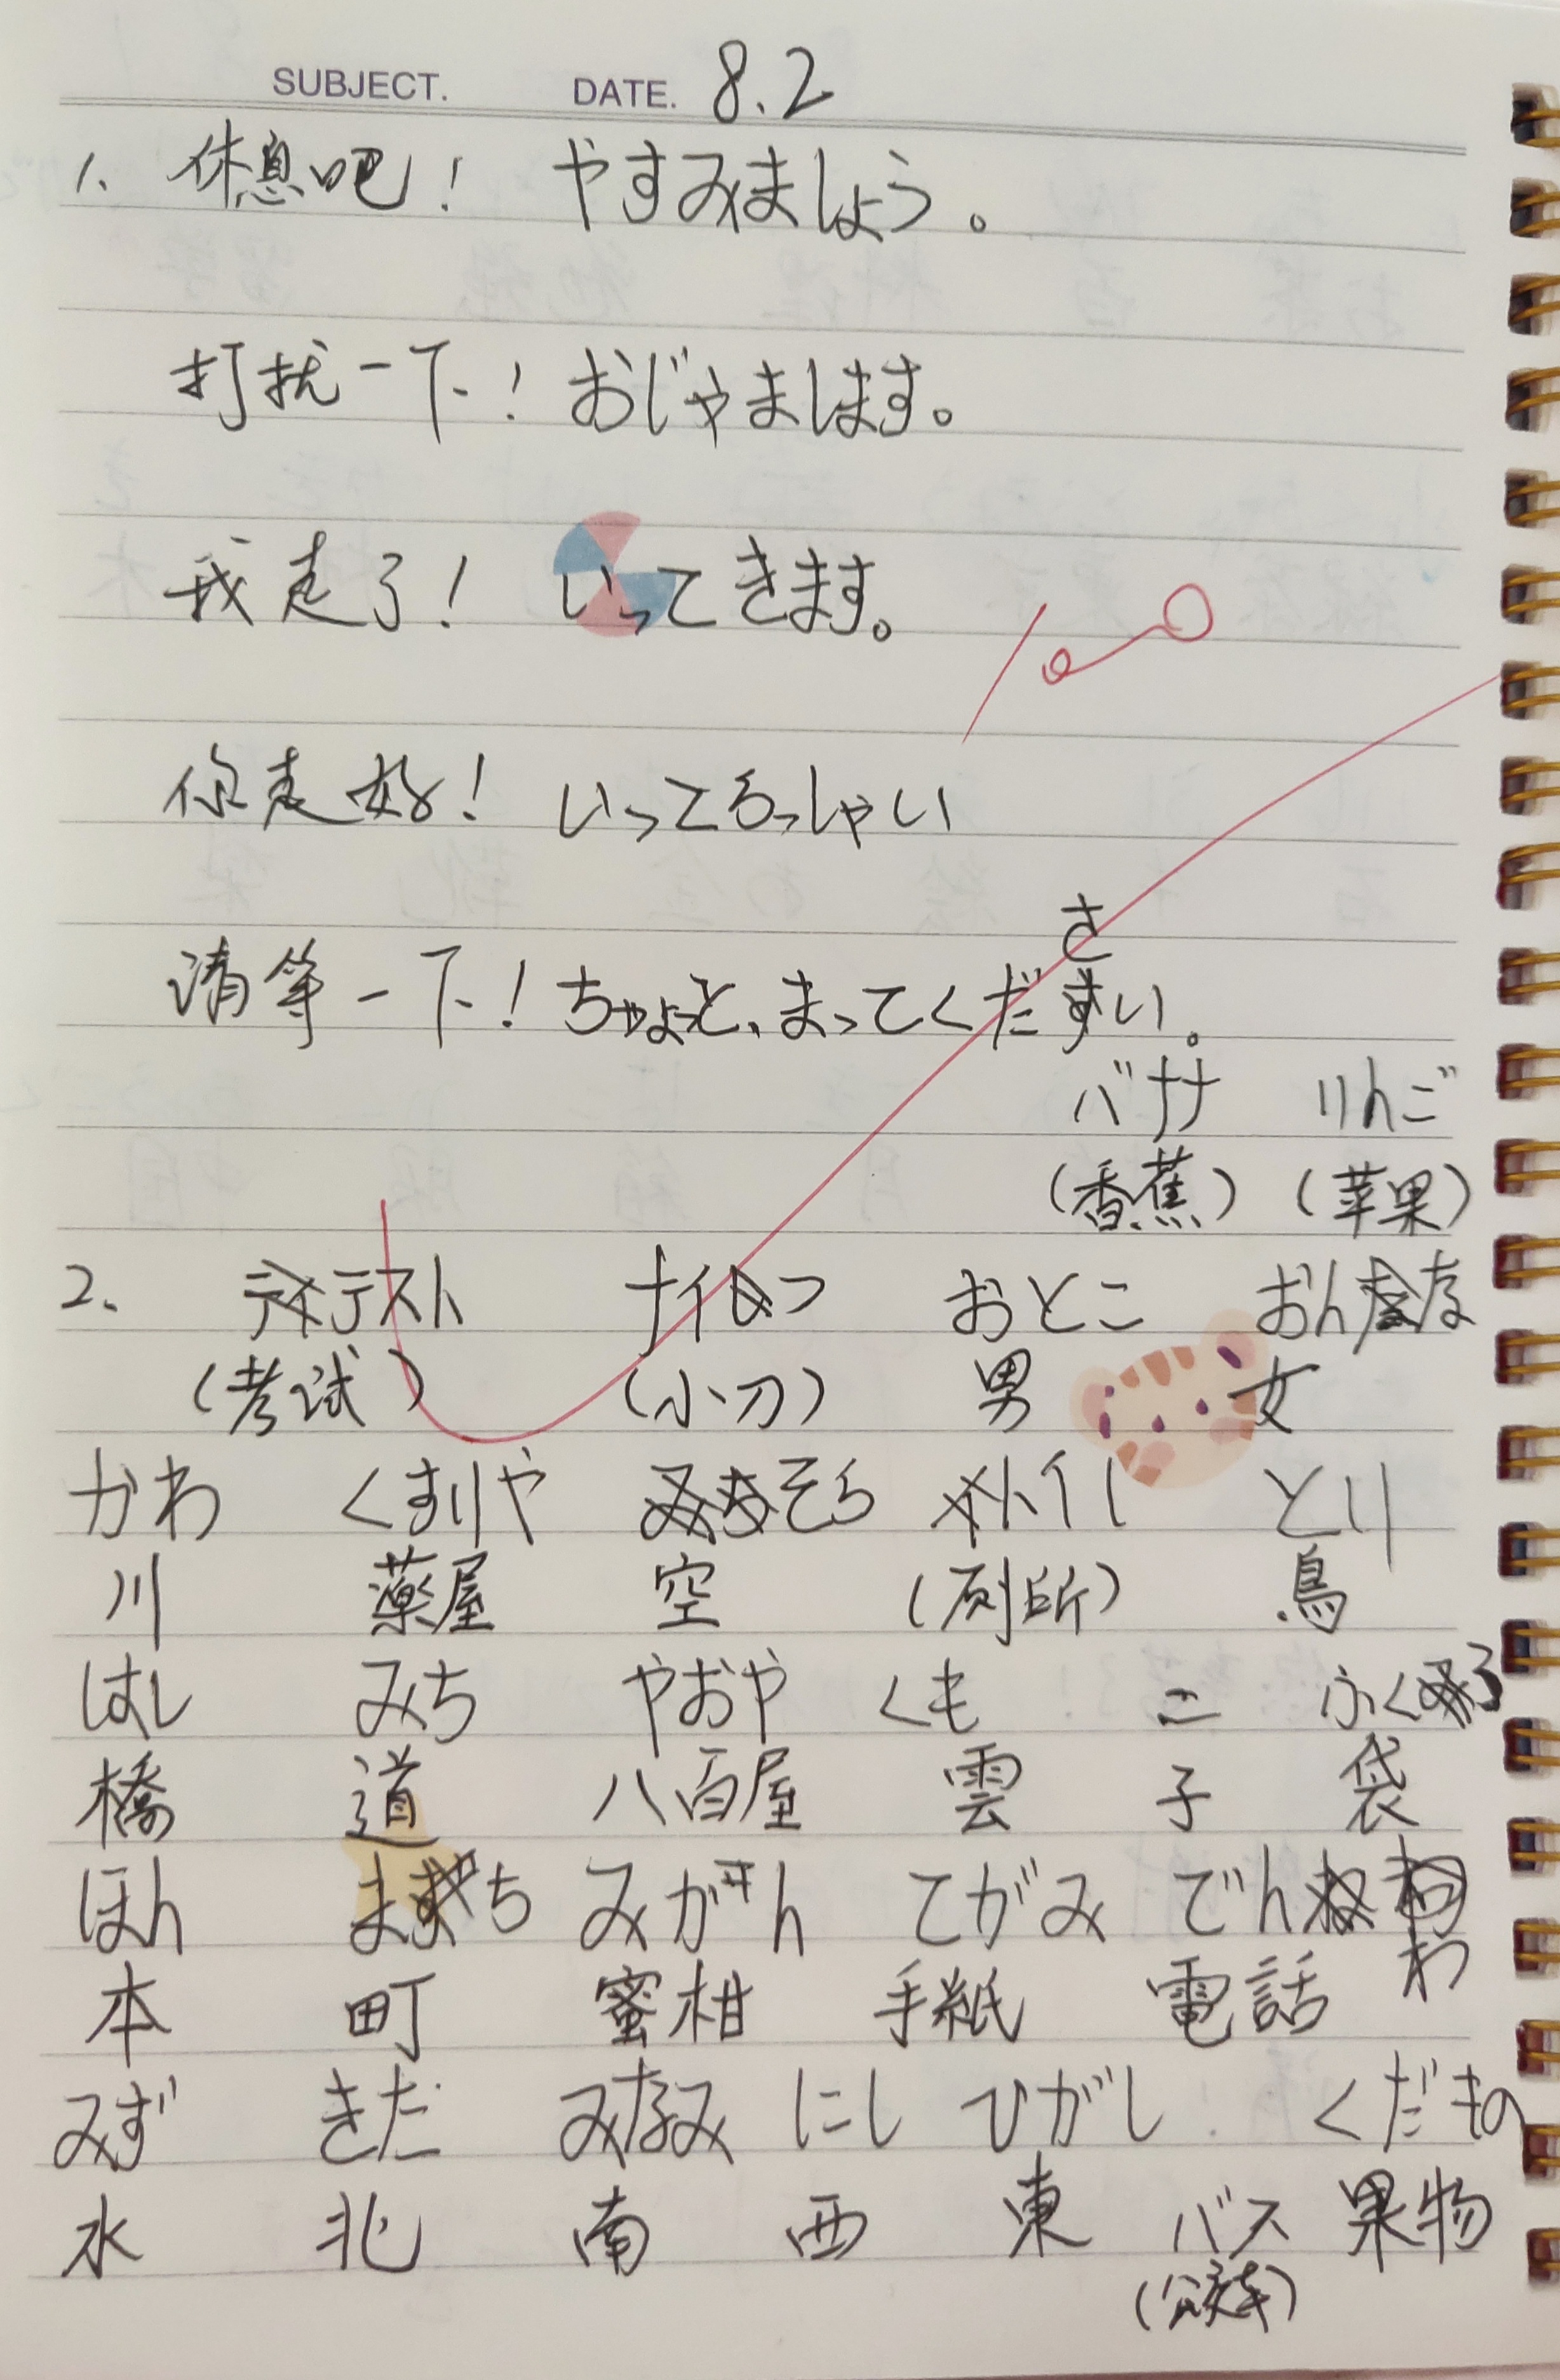 SUBJECT. DATE. 8.2
1. 休息吧! やすみましょう。
打扰一下! おじゃまします。
我走了! いってきます。
你走好! いってらっしゃい
100
さ
请等一下! ちょっと、まってください。
バナナ りんご
(香蕉) (苹果)
2. テスト ナイフ おとこ おんな
(考试) (小刀) 男 女
かわ くすりや そら トイレ とり
川 薬屋 空 (厕所) 鳥
はし みち やおや くも こ ふくろ
橋 道 八百屋 雲 子 袋
ほん まち みかん てがみ でん
わ
本 町 蜜柑 手紙 電話
みず きた みなみ にし ひがし くだもの
水 北 南 西 東 バス 果物
(公交车)